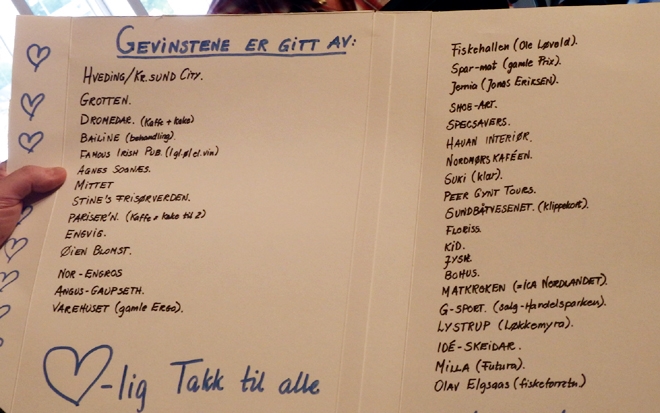 GEVINSTENE ER GITT AV:
HVEDING/KR.SUND CITY.
GROTTEN.
DROMEDAR. (Kaffe + kake)
BAILINE (behandling).
FAMOUS IRISH PUB. (1 gl. øl el. vin)
AGNES SOGNÆS.
MITTET
STINE'S FRISØRVERDEN.
PARISER'N. (Kaffe + kake til 2)
ENGVIG.
ØIEN BLOMST.
NOR-ENGROS
ANGUS-GAUPSETH.
VAREHUSET (gamle ERGO).
-lig Takk til alle
Fiskehallen (Ole Løvold).
Spar-mat (gamle Prix).
Jernia (Jonas ERIKSEN).
SHOE-ART.
SPECSAVERS.
HAUAN INTERIØR.
NORDMØRSKAFÉEN.
SUKI (klær).
PEER GYNT TOURS.
SUNDBÅTVESENET. (klippekort).
FLORISS.
KID.
JYSK.
BOHUS.
MATKROKEN (=ICA NORDLANDET).
G-SPORT. (salg-Handelsparken).
LYSTRUP (Løkkemyra).
IDÉ-SKEIDAR.
MILLA (Futura).
OLAV Elgsaas (fiskeforretn.)